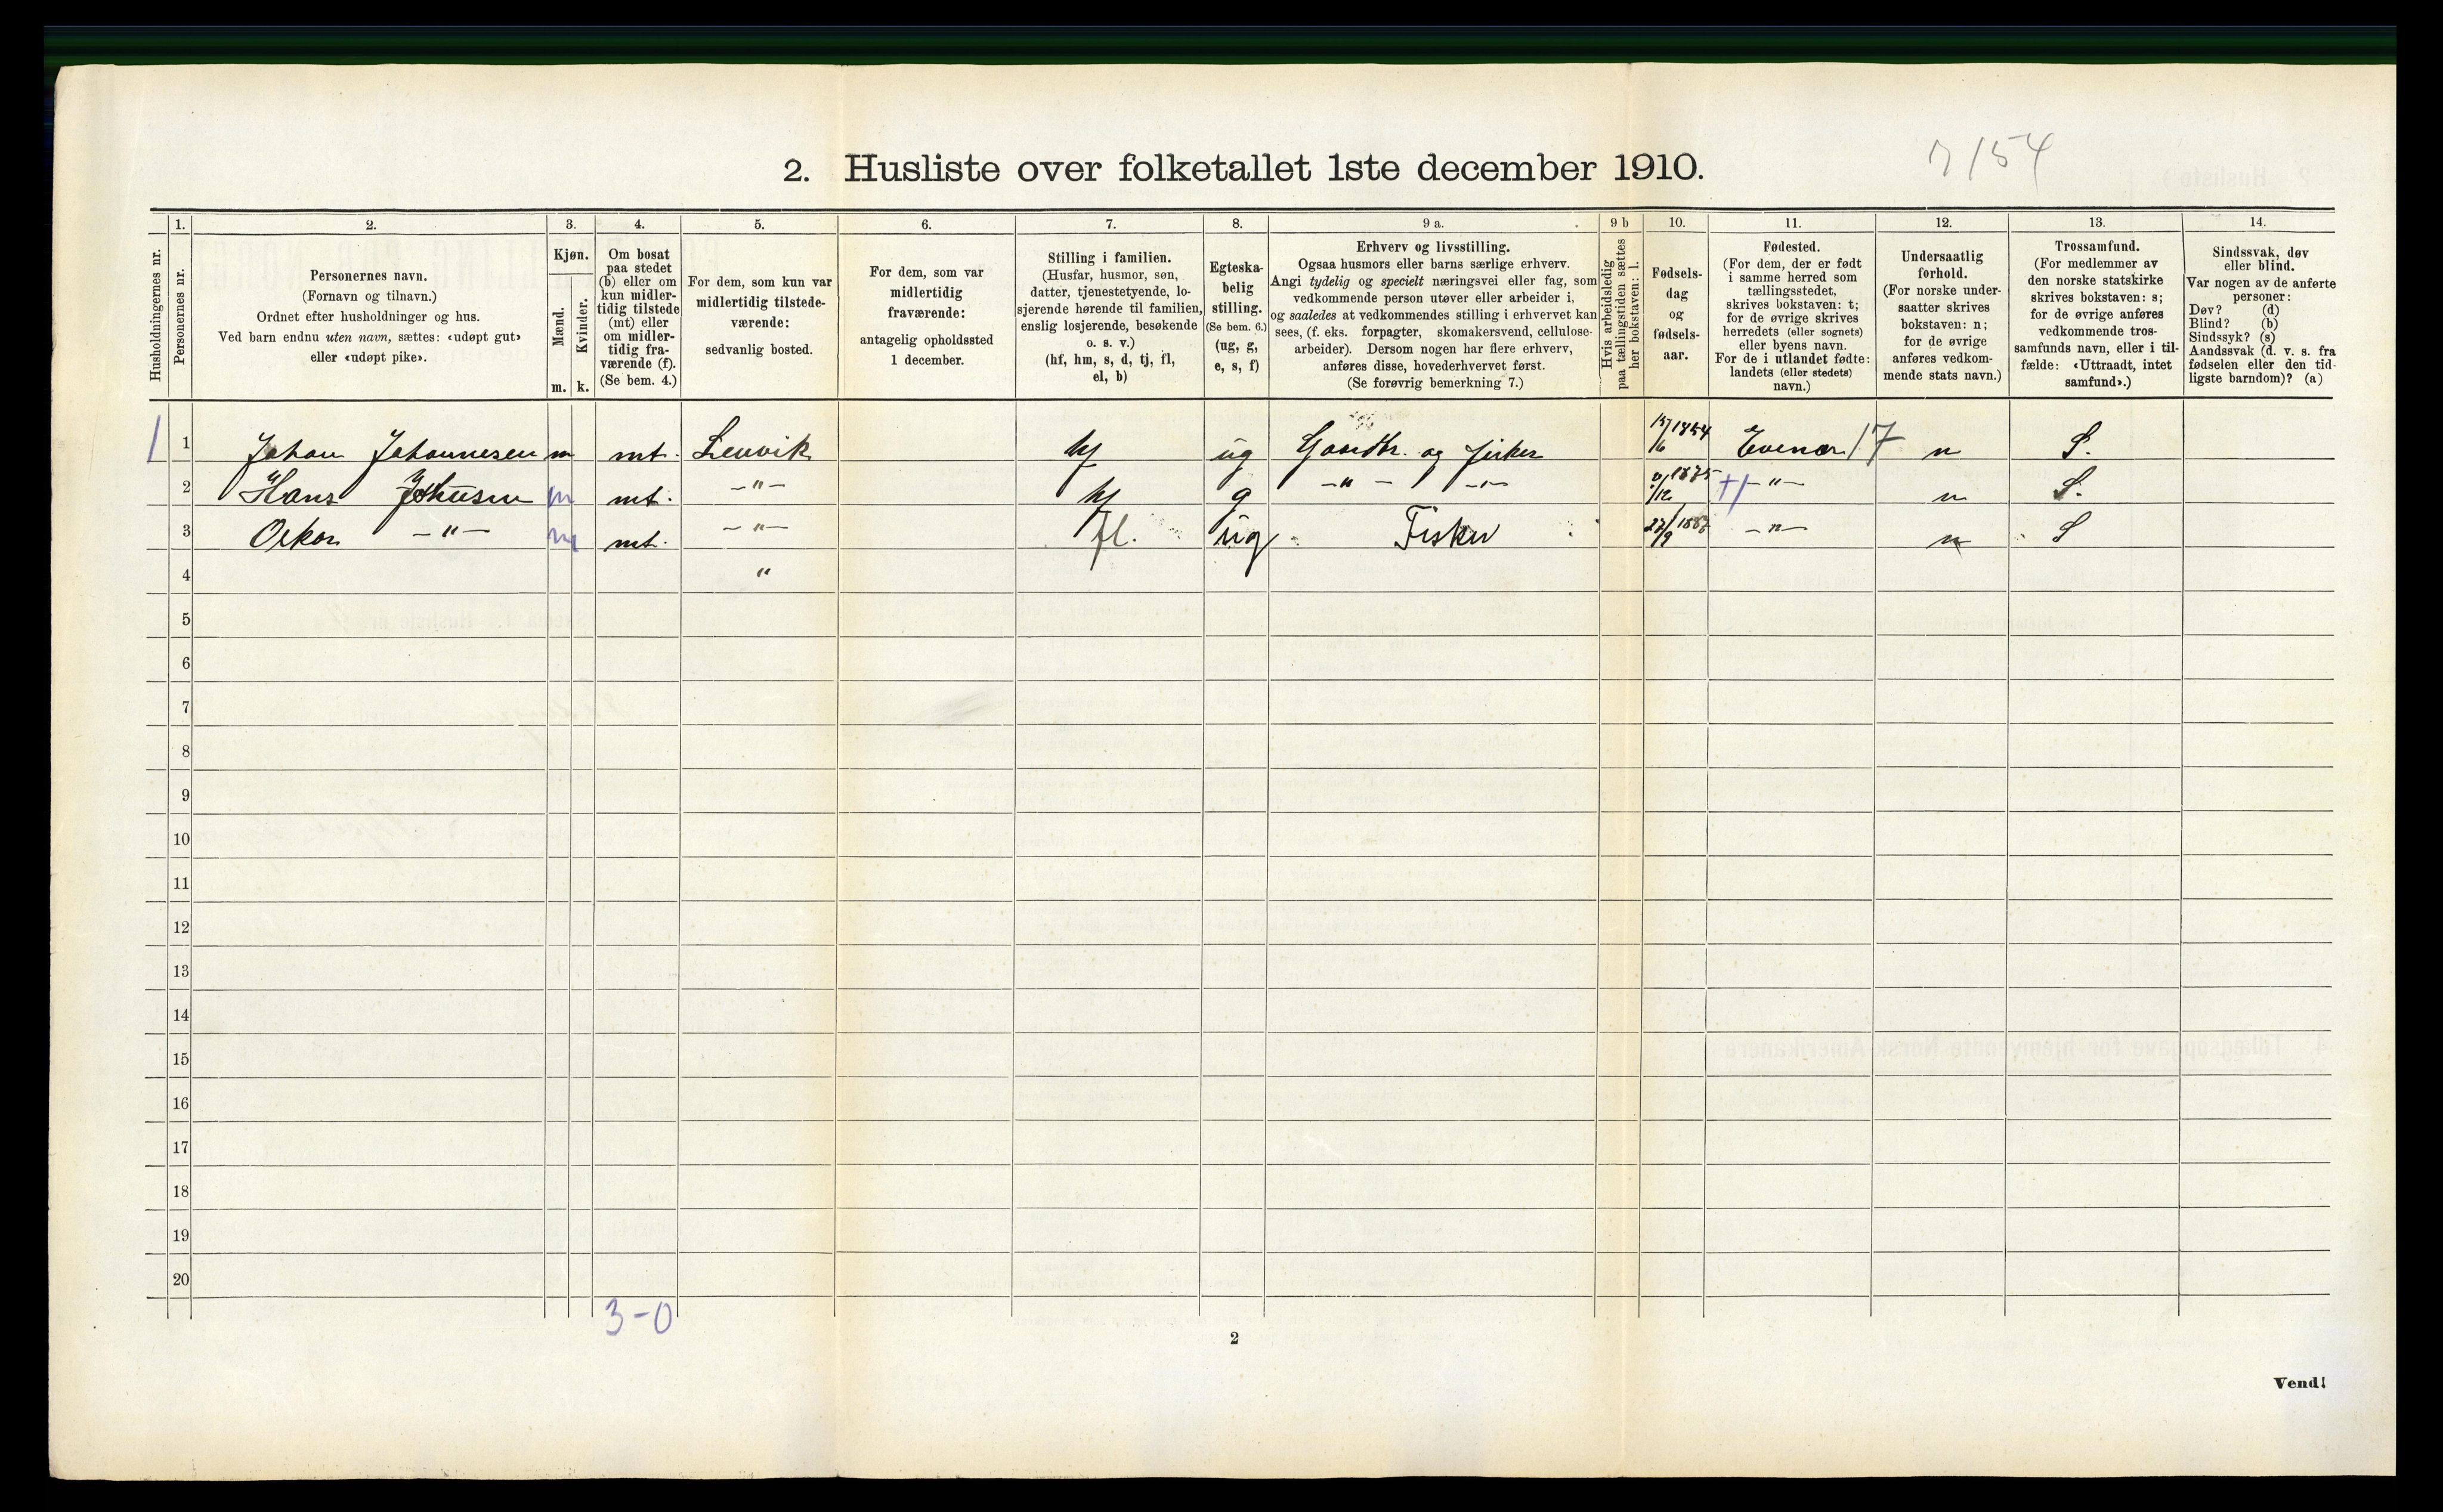 7/54
2. Husliste over folketallet 1ste december 1910.
Husholdningernes nr.
1. Personernes nr.
2. Personernes navn.
(Fornavn og tilnavn.)
Ordnet efter husholdninger og hus.
Ved barn endnu uten navn, sættes: «udøpt gut»
eller «udøpt pike».
3. Kjøn.
Mænd. m.
Kvinder. k.
4. Om bosat
paa stedet
(b) eller om
kun midler-
tidig tilstede
(mt) eller
om midler-
tidig fra-
værende (f).
(Se bem. 4.)
5. For dem, som kun var
midlertidig tilstede-
værende:
sedvanlig bosted.
6. For dem, som var
midlertidig
fraværende:
antagelig opholdssted
1 december.
7. Stilling i familien.
(Husfar, husmor, søn,
datter, tjenestetyende, lo-
sjerende hørende til familien,
enslig losjerende, besøkende
o. s. v.)
(hf, hm, s, d, tj, fl,
el, b)
8. Egteska-
belig
stilling.
(Se bem. 6.)
(ug, g,
e, s, f)
9 a. Erhverv og livsstilling.
Ogsaa husmors eller barns særlige erhverv.
Angi tydelig og specielt næringsvei eller fag, som
vedkommende person utøver eller arbeider i,
og saaledes at vedkommendes stilling i erhvervet kan
sees, (f. eks. forpagter, skomakersvend, cellulose-
arbeider). Dersom nogen har flere erhverv,
anføres disse, hovederhvervet først.
(Se forøvrig bemerkning 7.)
9 b Hvis arbeidsledig
paa tællingstiden sættes
her bokstaven: l.
10. Fødsels-
dag
og
fødsels-
aar.
11. Fødested.
(For dem, der er født
i samme herred som
tællingsstedet,
skrives bokstaven: t;
for de øvrige skrives
herredets (eller sognets)
eller byens navn.
For de i utlandet fødte:
landets (eller stedets)
navn.)
12. Undersaatlig
forhold.
(For norske under-
saatter skrives
bokstaven: n;
for de øvrige
anføres vedkom-
mende stats navn.)
13. Trossamfund.
(For medlemmer av
den norske statskirke
skrives bokstaven: s;
for de øvrige anføres
vedkommende tros-
samfunds navn, eller i til-
fælde: «Uttraadt, intet
samfund».)
14. Sindssvak, døv
eller blind.
Var nogen av de anførte
personer:
Døv? (d)
Blind? (b)
Sindssyk? (s)
Aandssvak (d. v. s. fra
fødselen eller den tid-
ligste barndom)? (a)
1 1 Johan Johannesen m mt. Lenvik hf ug Gaardbr. og fisker 15/6 1854 Evenær 17 n S.
2 Hans m mt. -"- hf g -"- -"- /12 1875 -"- n S.
3 Oskar -"- m mt. -"- fl. ug Fisker 27/9 -"- n S
4 "
5
6
7
8
9
10
11
12
13
14
15
16
17
18
19
20
3-0
2
Vend!